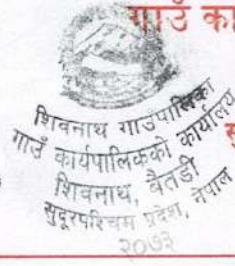 गाउँ का
शिवनाथ गाउँपालिका
गाउँ कार्यपालिकाको कार्यालय
शिवनाथ, बैतडी
सुदूरपश्चिम प्रदेश, नेपाल
२०७३